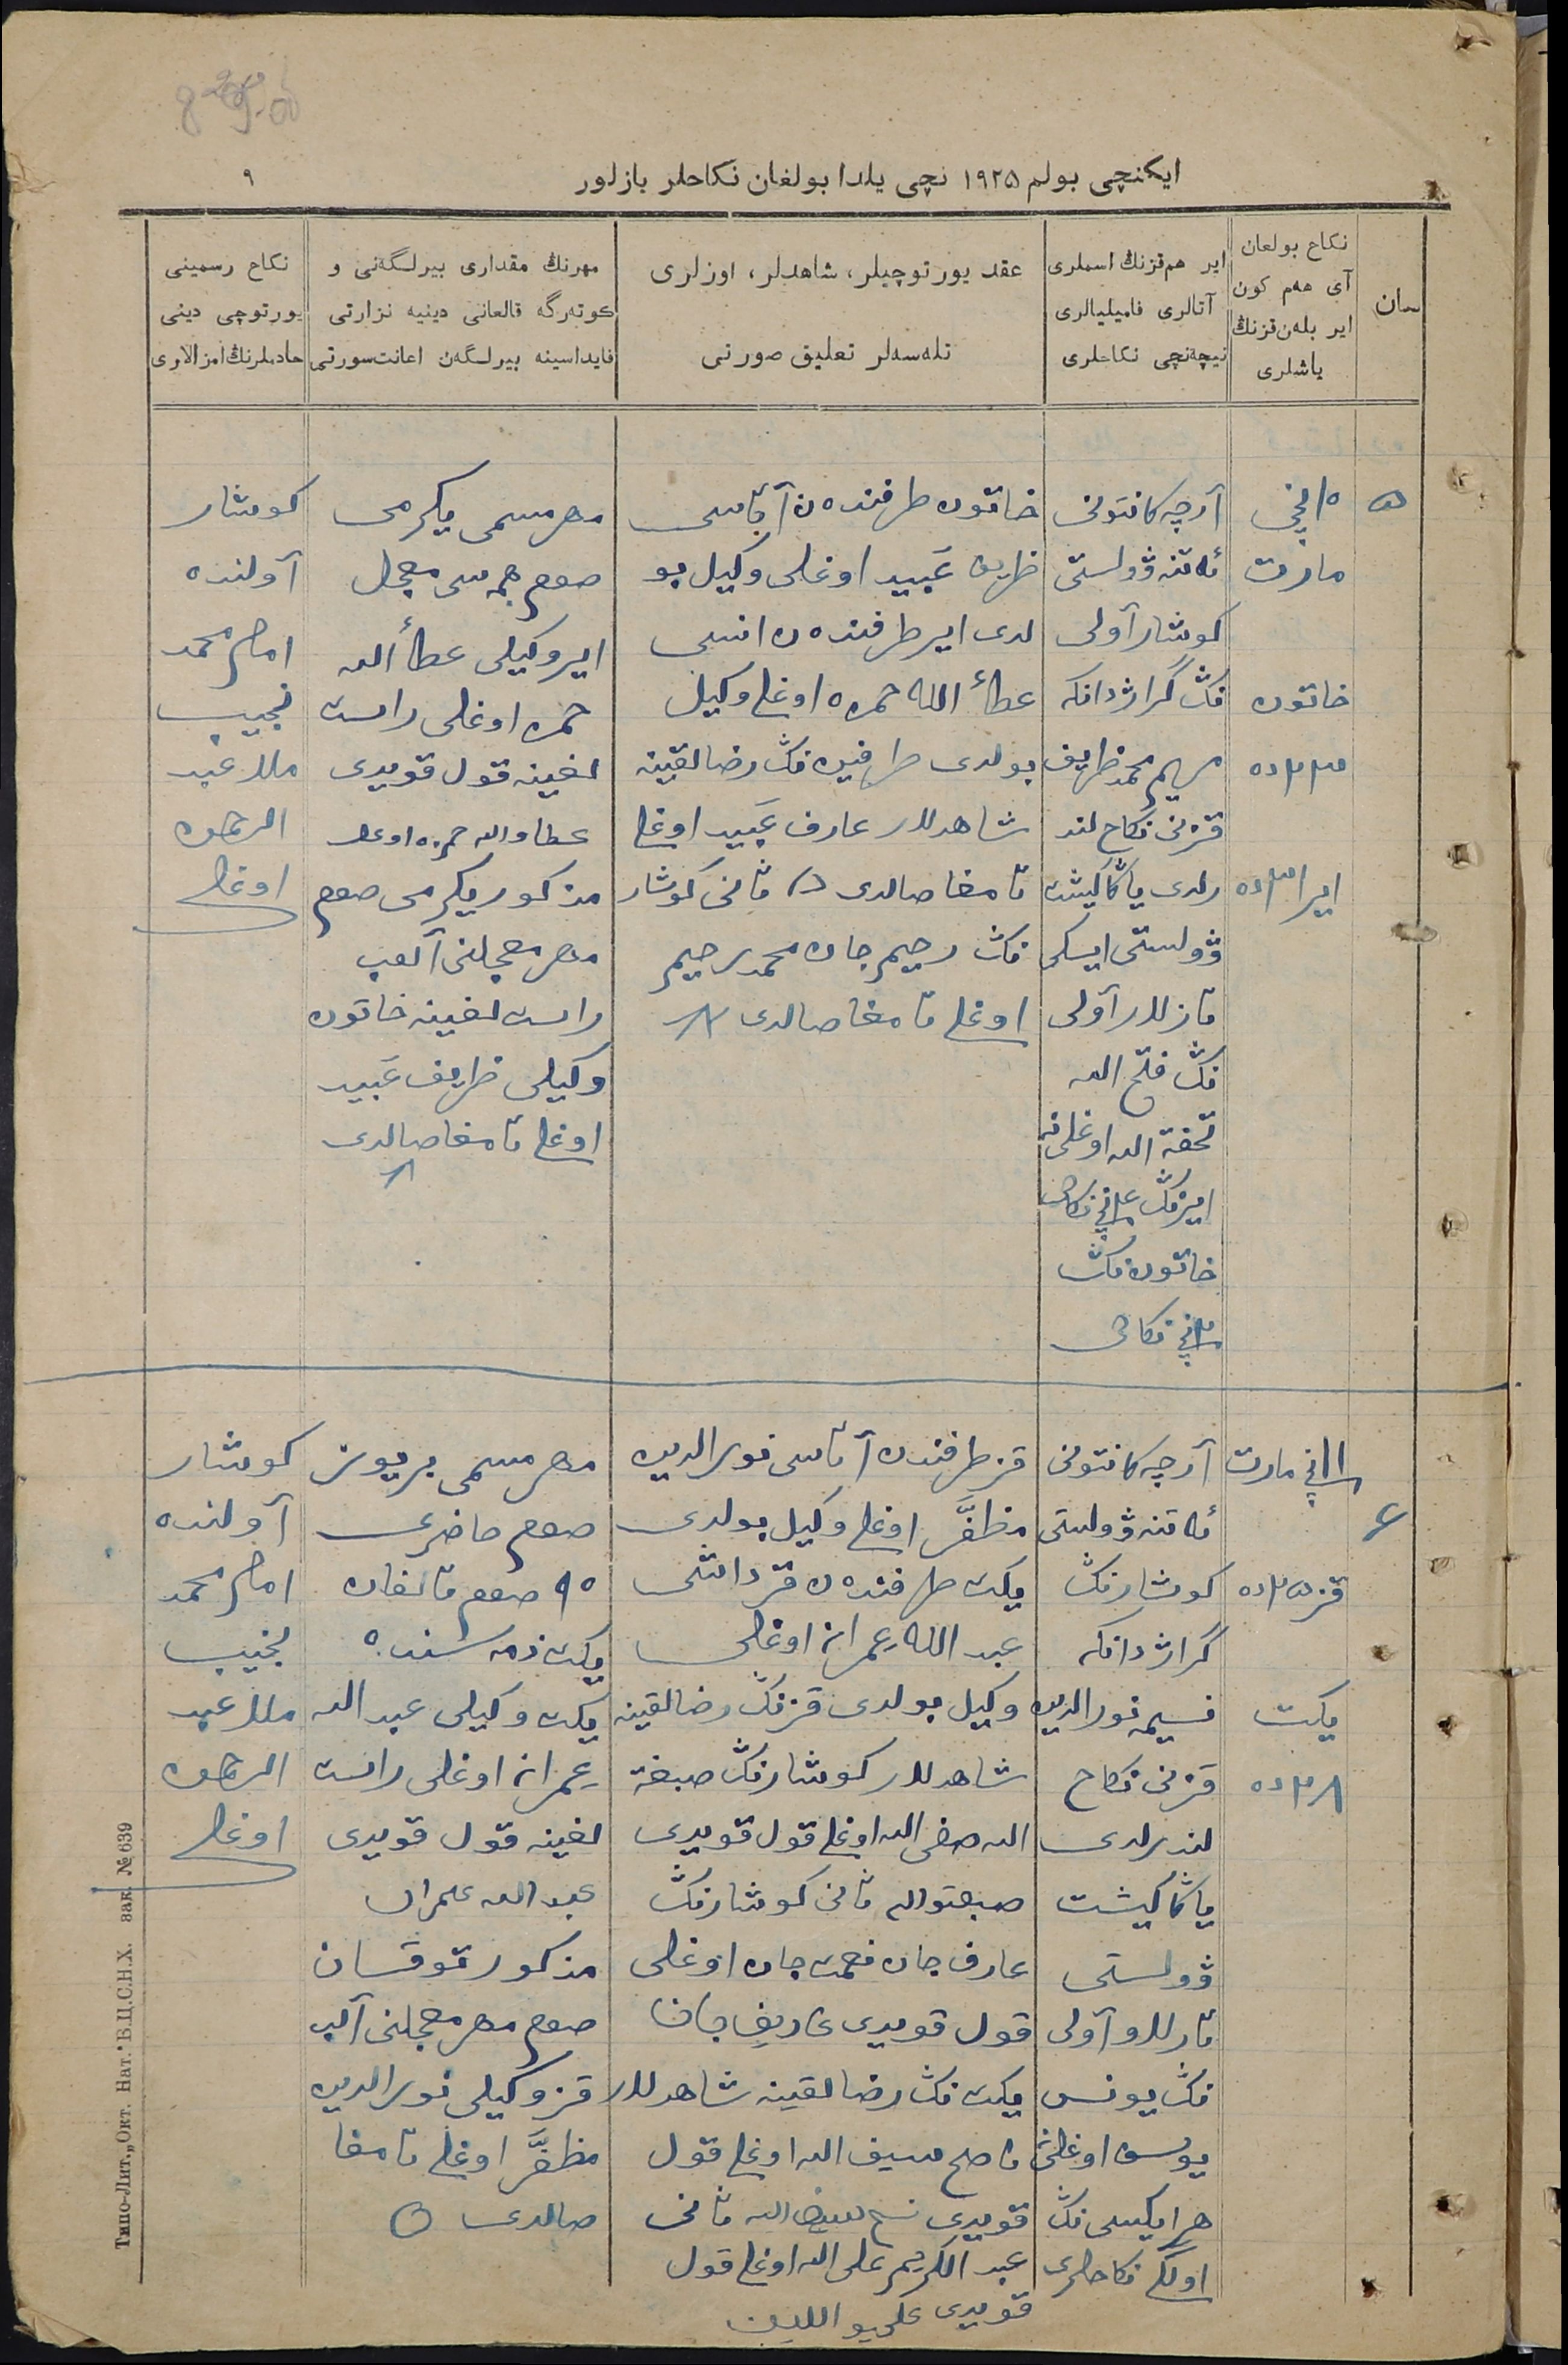 ایكنچی بولم ۱۹۲۵ نچی یلدا بولغان نكاحلر یازلور
۹
سان
نكاح بولعان
آی هەم كون
ایر بلەن قزنڭ
یاشلری
ایر هم قزنڭ اسملری
آتالری فامیلیالری
نیچەنچی نكاحلری
عقد یورتوچیلر، شاهدلر، اوزلری
تلەسەلر تعلیق صورتی
مهرنڭ مقداری بیرلگەنی و
كوتەرگە قالعانی دینیە نزارتی
فایداسینە بیرلگەن اعانت سورتی
نكاح رسمینی
یورتوچی دینی
حادملرنڭ امزالاری
۵
۱۰نچی
مارت
خاتون
۲۳ ده
ایر ۳۱ ده
آرچە كانتونی
ئەتنە ڤولستی
كوشار آولی
نڭ گراژدانكە
مریم محمدظریف
قزنی نكاح لند
رلدی یاڭاكیشت
ڤولستی ایسكی
نڭ فتح الله
تحفة الله اوغلینە
ایرنڭ نكاحی
خاتوننڭ
نكاحی
خاتون طرفندەن آتاسی
ظریف عبید اوغلی وكیل بو
لدی ایر طرفندەن انسی
عطأ الله حمزە اوغلی وكیل
بولدی طرفین نڭ رضالقینە
شاهدلار عارف عبید اوغلی
تامغا صالدی ثانی كوشار
نڭ رحیم جان محمدرحیم
اوغلی تامغا صالدی
مهر مسمی یكرمی
صوم جمەسی معجل
ایر وكیلی عطأ الله
حمزە اوغلی راست
لغینە قول قویدی
عطاوالله حمزە اوغلی
مذكور یكرمی صوم
مهر معجلنی آلوب
راست لغینە خاتون
وكیلی ظریف عبید
اوغلی تامغا صالدی
كوشار
آولندە
امام محمد
نجیب
ملا عبد
الرحمن
اوغلی
۶
۱۱نچی مارت
قز ۲۵ ده
یكت
۲۸ ده
آرچە كانتونی
ئەتنە ڤولستی
كوشارنڭ
گراژدانكە
نسیمە نورالدین
قزنی نكاح
لندرلدی
یاڭاكیشت
ڤولستی
آولی
نڭ یونس
یوسف اوغلینە
هر ایكیسی نڭ
اولگی نكاحلری
قز طرفندن آتاسی نورالدین
مظفَّر اوغلی وكیل بولدی
یكت طرفندەن قرداشی
عبد الله عمران اوغلی
وكیل بولدی قزنڭ رضالقینە
شاهدلار كوشارنڭ صبغة
الله صفی الله اوغلی قول قویدی
صبغتوالله ثانی كوشارنڭ
عارف جان نعمت جان اوغلی
قول قویدی عاریف جان
یكت نڭ رضالقینە شاهدلار
ناصح سیف الله اوغلی قول
قویدی ثانی
عبد الكریم علی الله اوغلی قول
قویدی
مهر مسمی بر یوز
صوم حاضری
۹۰ صوم قالغان
یكت ذمە سندە
یكت وكیلی عبد الله
عمران اوغلی راست
لغینە قول قویدی
عبدالله عمران
مذكور توقسان
صوم مهر معجلنی آلب
قز وكیلی نورالدین
مظفَّر اوغلی تامغا
صالدی
كوشار
آولندە
امام محمد
نجیب
ملا عبد
الرحمن
اوغلی
Типо-Лит. „Окт. Нат." В.Ц.С.Н.Х. зак. № 639